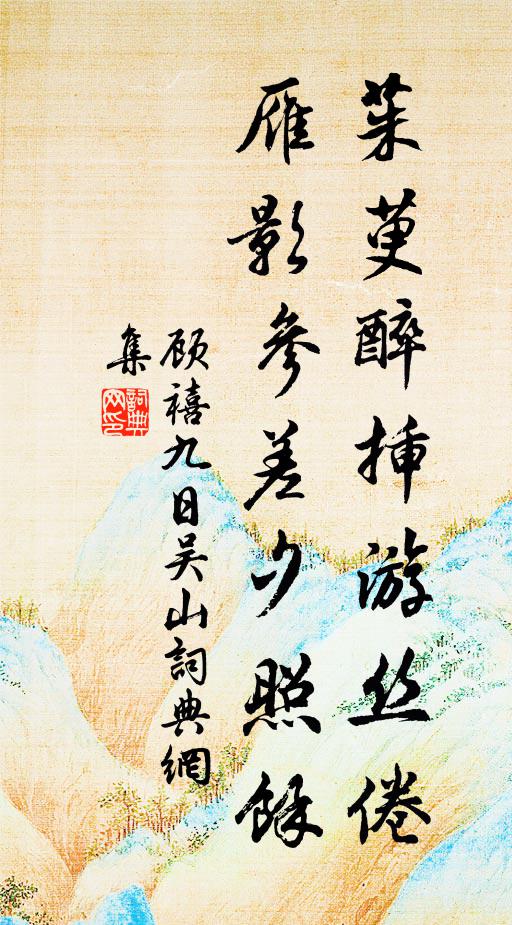 茱萸醉插游丝倦
雁影參差夕照餘
顾禧九日吴山詞典網
集
詞典
网印